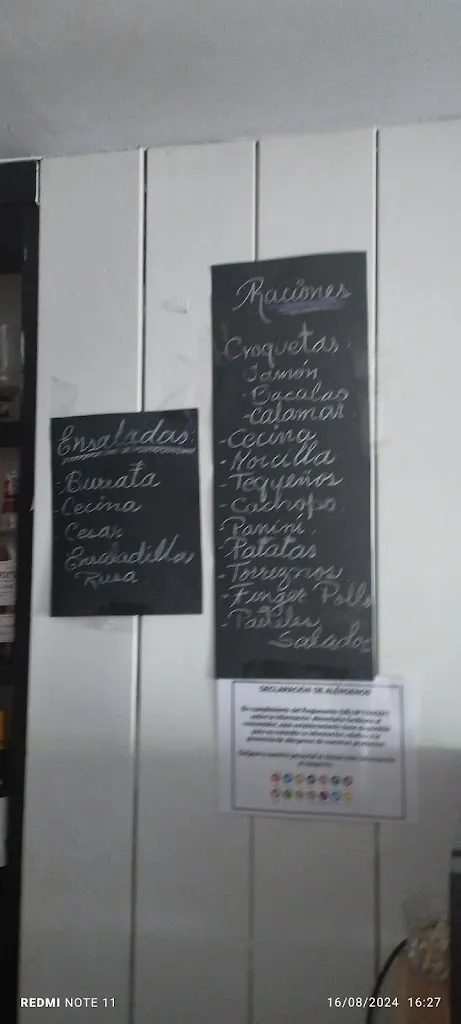 Ensaladas:
-Burrata
-Cecina
-Cesar
Ensaladilla
Rusa
Raciones
Croquetas.
Jamón
-Bacalao
-Calamar.
-Cecina
-Morcilla
-Tequeños
-Cachopo.
-Panini.
-Patatas
-Torreznos
-Finger Pollo
-Pasteles
Salados
DECLARACIÓN DE ALÉRGENOS
REDMI NOTE 11
16/08/2024 16:27